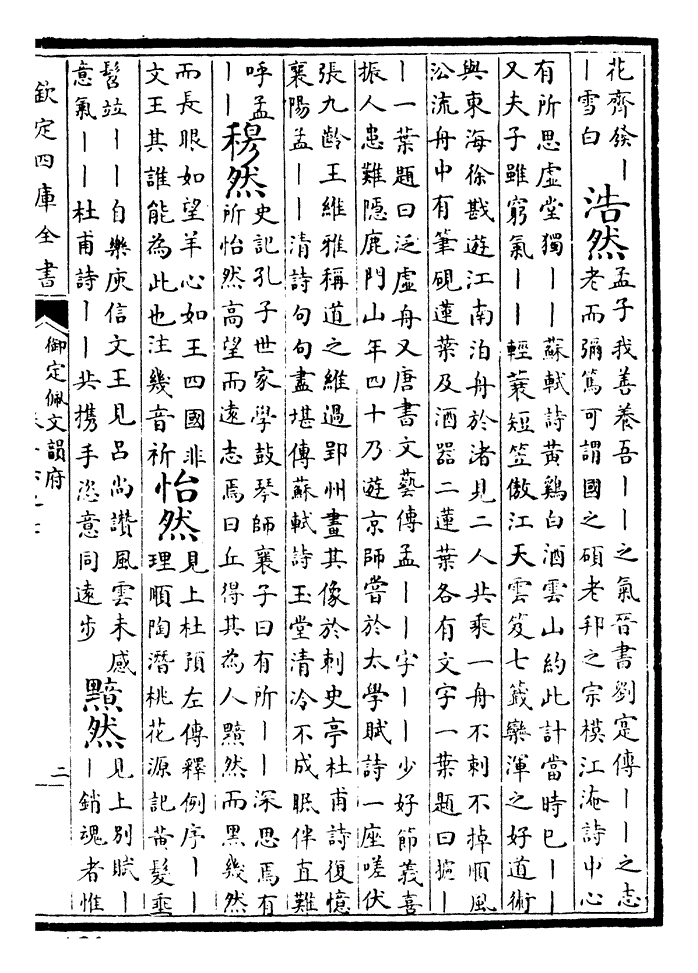 花齊發｜
｜雪白
浩然
孟子我善養吾｜｜之氣晉書劉寔傳｜｜之志
老而彌篤可謂國之碩老邦之宗模江淹詩中心
有所思虛堂獨｜｜蘇軾詩黃鷄白酒雲山約此計當時已｜｜
又夫子雖窮氣｜｜輕蓑短笠傲江天雲笈七籤欒渾之好道術
與東海徐戡遊江南泊舟於渚見二人共乘一舟不刺不掉順風
㳂流舟中有筆硯蓮葉及酒器二蓮葉各有文字一葉題曰｜
｜一葉題曰泛虛舟又唐書文藝傳孟｜｜字｜｜少好節義喜
振人患難隱鹿門山年四十乃遊京師嘗於太學賦詩一座嗟伏
張九齡王維雅稱道之維過郢州畫其像於刺史亭杜甫詩復憶
襄陽孟｜｜清詩句句盡堪傳蘇軾詩玉堂清冷不成眠伴直難
呼孟
｜｜
穆然
史記孔子世家學鼓琴師襄子曰有所｜｜深思焉有
所怡然高望而遠志焉曰丘得其為人黯然而黑幾然
而長眼如望羊心如王四國非
文王其誰能為此也注幾音祈
怡然
見上杜預左傳釋例序｜｜
理順陶潛桃花源記黃髮垂
髫竝｜｜自樂庾信文王見呂尚讚風雲未感
意氣｜｜杜甫詩｜｜共攜手恣意同遠步
黯然
見上別賦｜
｜銷魂者惟
欽定四庫全書
御定佩文韻府
二